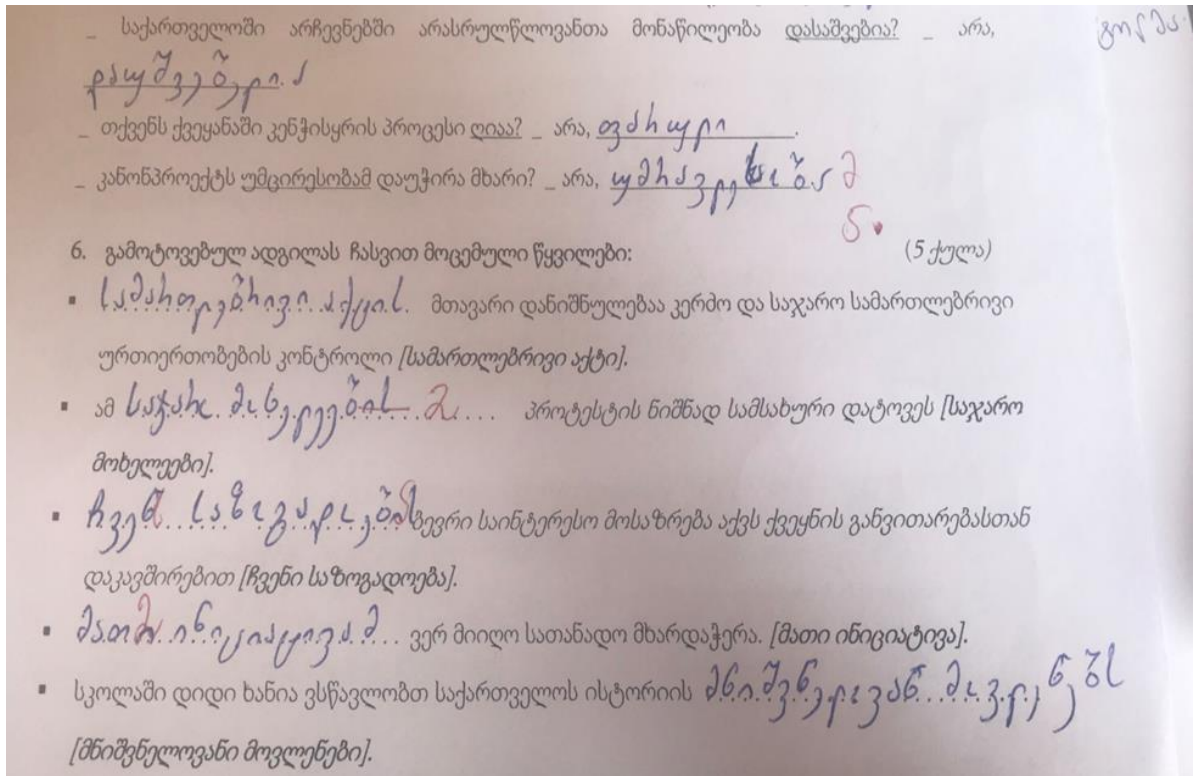 _ საქართველოში არჩევნებში არასრულწლოვანთა მონაწილეობა დასაშვებია? _ არა,
დაუშვებელია
_ თქვენს ქვეყანაში კენჭისყრის პროცესი ღიაა? _ არა, ფარული.
_ კანონპროექტს უმცირესობამ დაუჭირა მხარი? _ არა, უმრავლესობა მ
5
6. გამოტოვებულ ადგილას ჩასვით მოცემული წყვილები: (5 ქულა)
▪ სამართლებრივი აქტის. მთავარი დანიშნულებაა კერძო და საჯარო სამართლებრივი
ურთიერთობების კონტროლი [სამართლებრივი აქტი].
▪ ამ საჯარო მოხელეების მა.... პროტესტის ნიშნად სამსახური დატოვეს [საჯარო
მოხელეები].
▪ ჩვენ საზოგადოებას ბევრი საინტერესო მოსაზრება აქვს ქვეყნის განვითარებასთან
დაკავშირებით [ჩვენი საზოგადოება].
▪ მათმა ინიციატივამ... ვერ მიიღო სათანადო მხარდაჭერა. [მათი ინიციატივა].
▪ სკოლაში დიდი ხანია ვსწავლობთ საქართველოს ისტორიის მნიშვნელოვან მოვლენებს
[მნიშვნელოვანი მოვლენები].